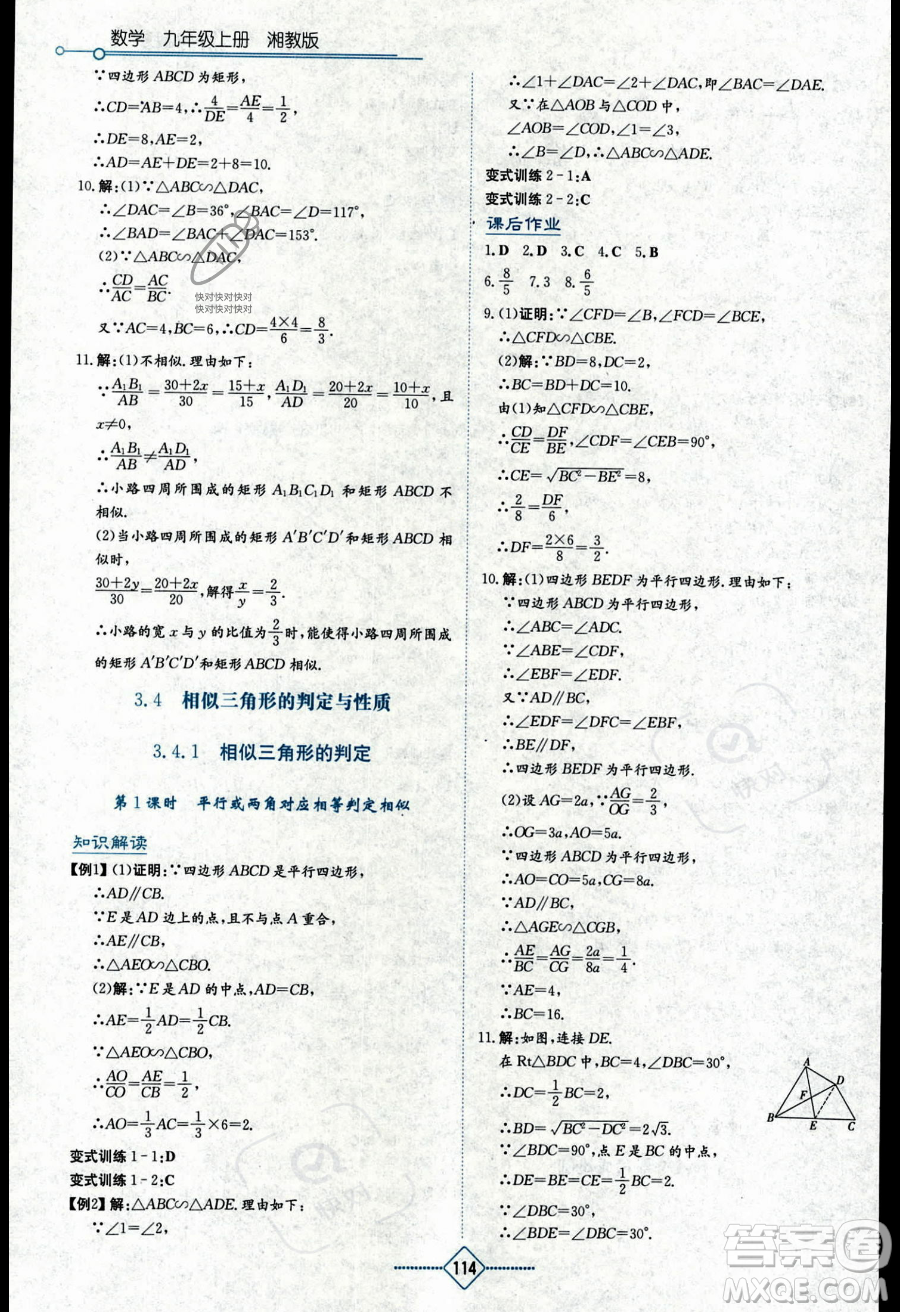 数学 九年级上册 湘教版
∵四边形ABCD为矩形,
∴CD=AB=4,4/DE=AE/4=1/2,
∴DE=8,AE=2,
∴AD=AE+DE=2+8=10.
10.解:(1)∵△ABC∽△DAC,
∴∠DAC=∠B=36°,∠BAC=∠D=117°,
∴∠BAD=∠BAC+∠DAC=153°.
(2)∵△ABC∽△DAC,
∴CD/AC=AC/BC.
又∵AC=4,BC=6,∴CD=4×4/6=8/3.
11.解:(1)不相似.理由如下:
∵A₁B₁/AB=30+2x/30=15+x/15,A₁D₁/AD=20+2x/20=10+x/10,且
x≠0,
∴A₁B₁/AB≠A₁D₁/AD,
∴小路四周所围成的矩形A₁B₁C₁D₁和矩形ABCD不
相似.
(2)当小路四周所围成的矩形A′B′C′D′和矩形ABCD相
似时,
30+2y/30=20+2x/20,解得x/y=2/3.
∴小路的宽x与y的比值为2/3时,能使得小路四周所围成
的矩形A′B′C′D′和矩形ABCD相似.
3.4 相似三角形的判定与性质
3.4.1 相似三角形的判定
第1课时 平行或两角对应相等判定相似
知识解读
【例1】(1)证明:∵四边形ABCD是平行四边形,
∴AD∥CB.
∵E是AD边上的点,且不与点A重合,
∴AE∥CB,
∴△AEO∽△CBO.
(2)解:∵E是AD的中点,
∴AE=1/2AD=1/2CB.
∵△AEO∽△CBO,
∴AO/CO=AE/CB=1/2,
∴AO=1/3AC=1/3×6=2.
变式训练1-1:D
变式训练1-2:C
【例2】解:△ABC∽△ADE.理由如下:
∵∠1=∠2,
∴∠1+∠DAC=∠2+∠DAC,即∠BAC=∠DAE.
又∵在△AOB与△COD中,
∠AOB=∠COD,∠1=∠3,
∴∠B=∠D,∴△ABC∽△ADE.
变式训练2-1:A
变式训练2-2:C
课后作业
1.D 2.D 3.C 4.C 5.B
6.8/5 7.3 8.6/5
9.(1)证明:∵∠CDF=∠BEC,∠FCD=∠BCE,
∴△CFD∽△CBE.
(2)解:∵BD=8,DC=2,
∴BC=BD+DC=10.
由(1)知△CFD∽△CBE,
∴CD/CE=DF/BE,∠CDF=∠CEB=90°,
∴CE=√(BC²-BE²)=8,
∴2/8=DF/6,
∴DF=2×6/8=3/2.
10.解:(1)四边形BEDF为平行四边形.理由如下:
∵四边形ABCD为平行四边形,
∴∠ABC=∠ADC.
∵∠ABE=∠CDF,
∴∠EBF=∠EDF.
又∵AD∥BC,
∴∠EDF=∠CFD=∠EBF,
∴BE∥DF,
∴四边形BEDF为平行四边形.
(2)设AG=2a,∵AG/OG=2/3,
∴OG=3a,AO=5a.
∵四边形ABCD为平行四边形,
∴AO=CO=5a,CG=8a.
∵AD∥BC,
∴△AGE∽△CGB,
∴AE/BC=AG/CG=2a/8a=1/4.
∵AE=4,
∴BC=16.
11.解:如图,连接DE.
在Rt△BDC中,BC=4,∠DBC=30°,
∴DC=1/2BC=2,
∴BD=√(BC²-DC²)=2√3.
∵∠BDC=90°,点E是BC的中点,
∴DE=BE=CE=1/2BC=2.
∵∠DBC=30°,
∴∠BDE=∠DBC=30°.
A
D
F
B
E
C
114
快对快对快对
快对快对快对
答案圈
MXQE.COM